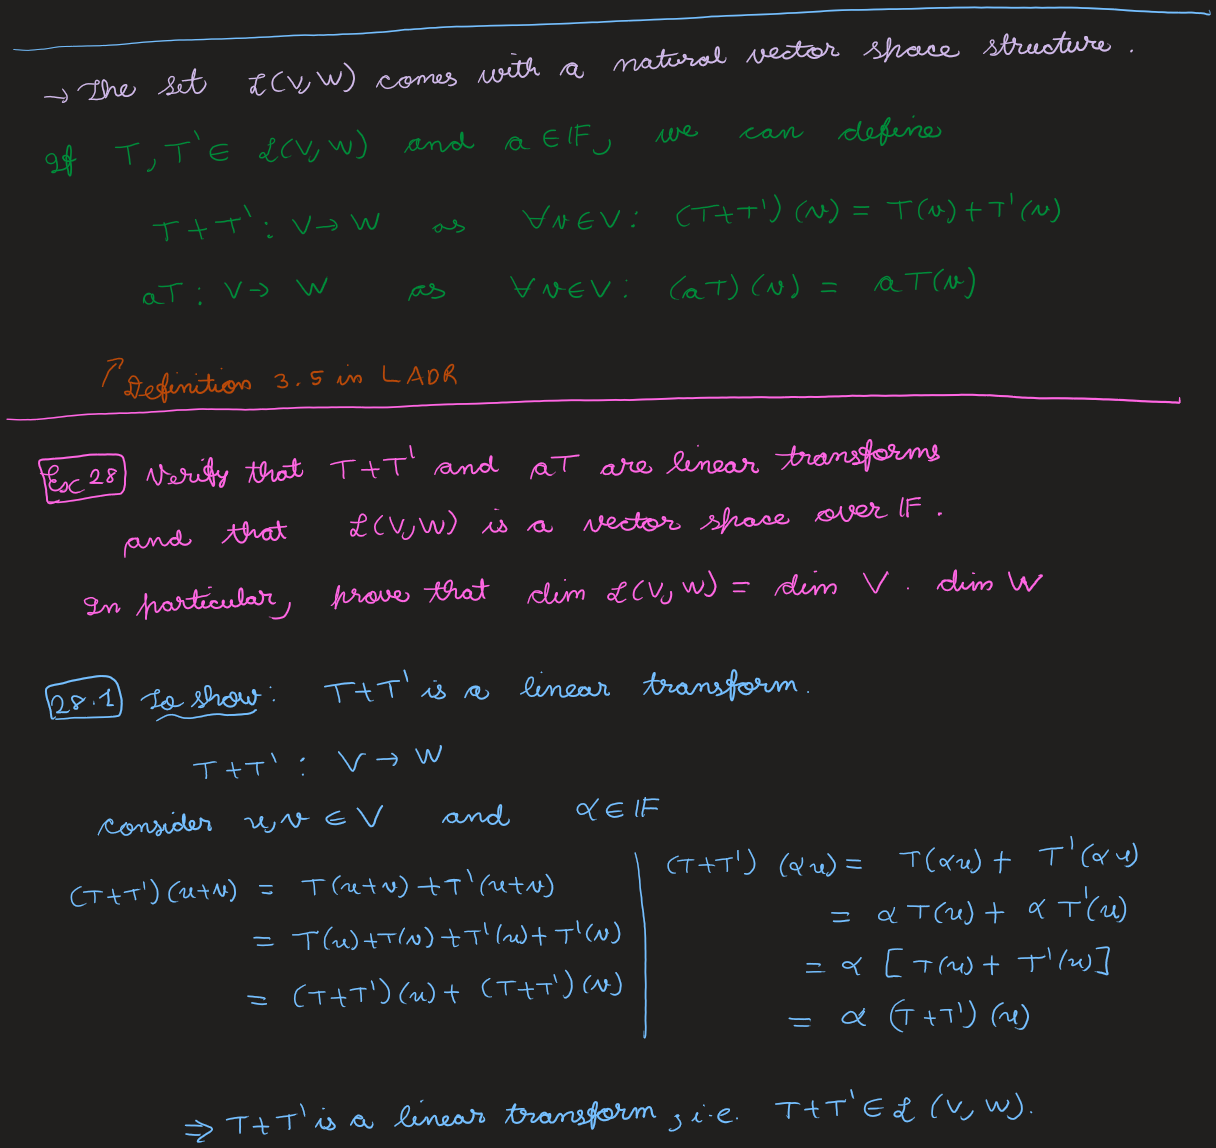 → The set ℒ(V,W) comes with a natural vector space structure.
If T, T' ∈ ℒ(V,W) and a ∈ 𝔽, we can define
T+T' : V → W as ∀v∈V : (T+T')(v) = T(v)+T'(v)
aT : V → W as ∀v∈V : (aT)(v) = aT(v)
↗ Definition 3.5 in LADR
Ex 28 Verify that T+T' and aT are linear transforms
and that ℒ(V,W) is a vector space over 𝔽.
In particular, prove that dim ℒ(V,W) = dim V . dim W
28.1 To show : T+T' is a linear transform.
T+T' : V → W
consider u,v ∈ V and α ∈ 𝔽
(T+T')(u+v) = T(u+v)+T'(u+v)
= T(u)+T(v)+T'(u)+T'(v)
= (T+T')(u)+(T+T')(v)
(T+T')(αu) = T(αu)+T'(αu)
= αT(u)+αT'(u)
= α[T(u)+T'(u)]
= α(T+T')(u)
⇒ T+T' is a linear transform, i.e. T+T' ∈ ℒ(V,W).